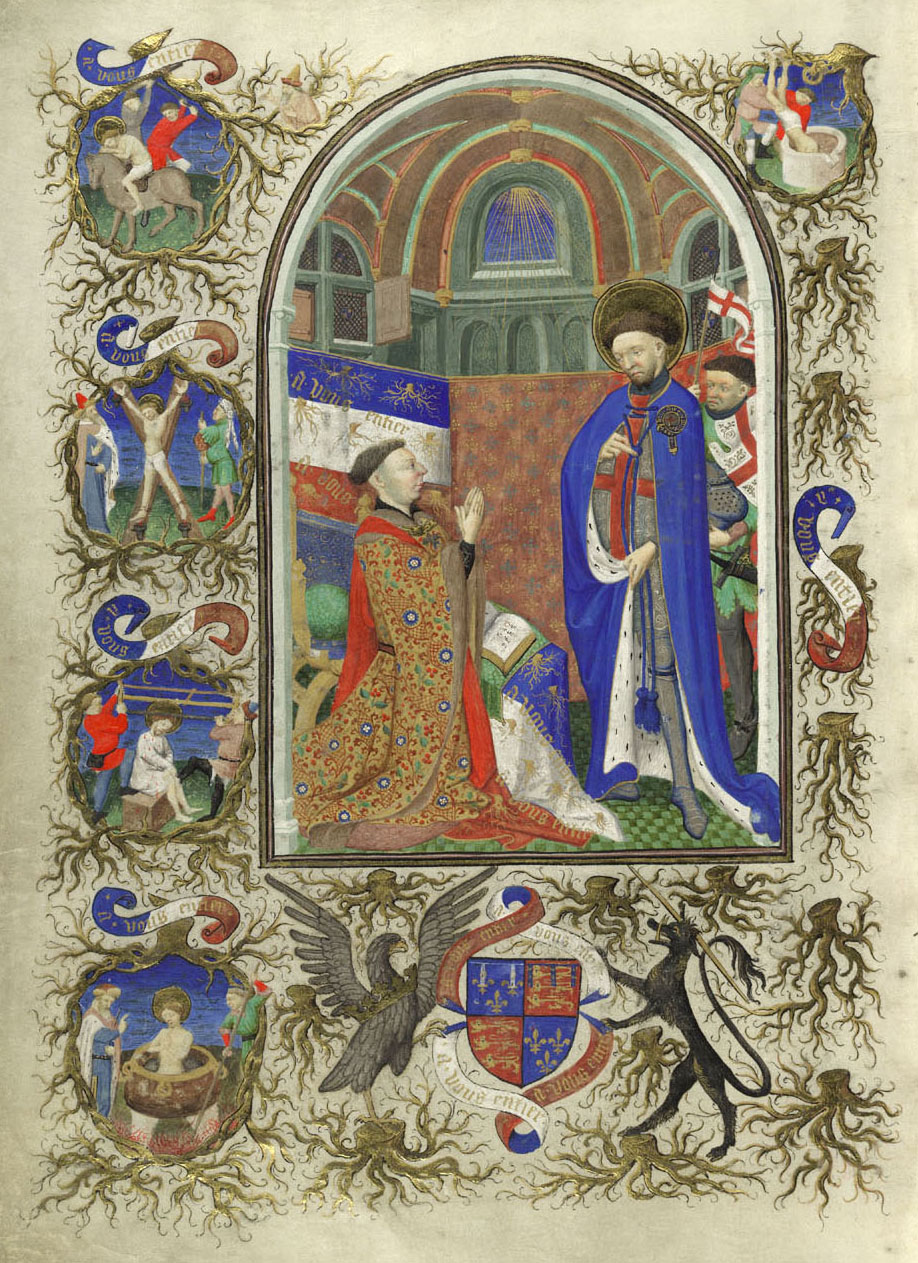 a vous entier
a vous entier
a vous entier
a vous
a vous entier
a vous entier
vous
vous entier
a vous entier
a vous entier
vous entier
a vous entier
a vous entier